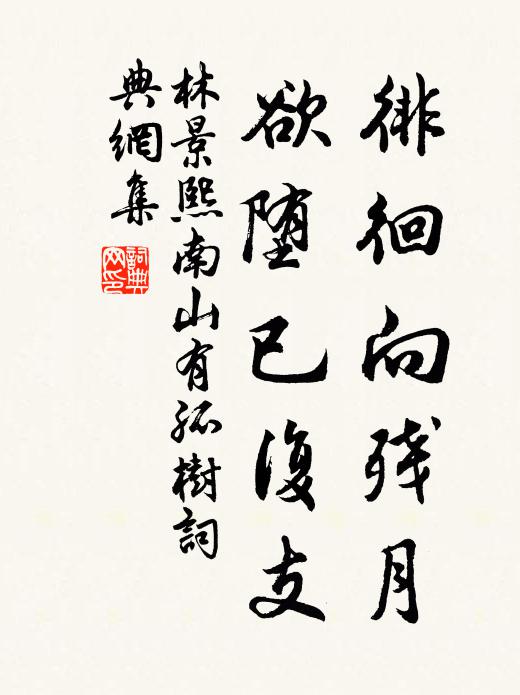 徘徊向残月
欲堕已復支
林景熙南山有孤樹詞
典網集
詞典
网印